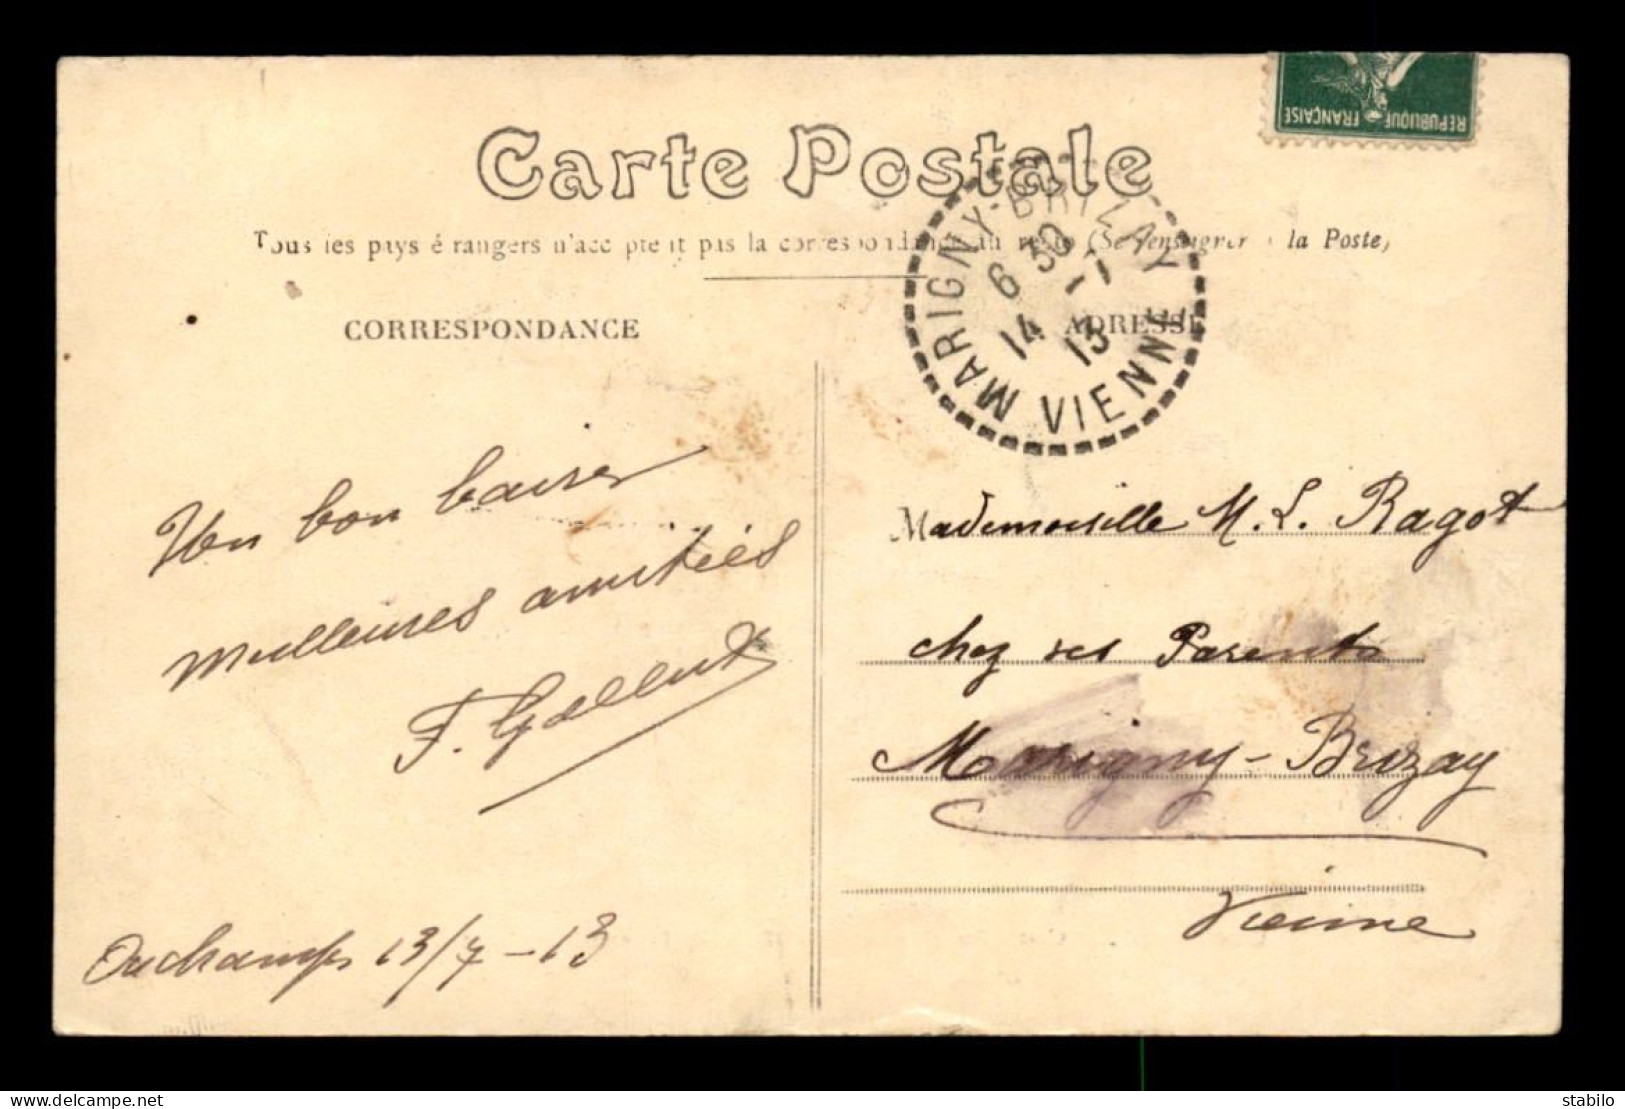 REPUBLIQUE FRANÇAISE
Carte Postale
Tous les pays é rangers n'acc pte it pas la correspondance au recto (Se renseigner à la Poste)
MARIGNY-BRIZAY
6 30
14 -7
13
VIENNE
CORRESPONDANCE
ADRESSE
Un bon baiser
meilleures amitiés
F. Gallut
Ouchamps 13/7-13
Mademoiselle M. L. Ragot
chez ses Parents
Marigny-Brizay
Vienne
stabilo